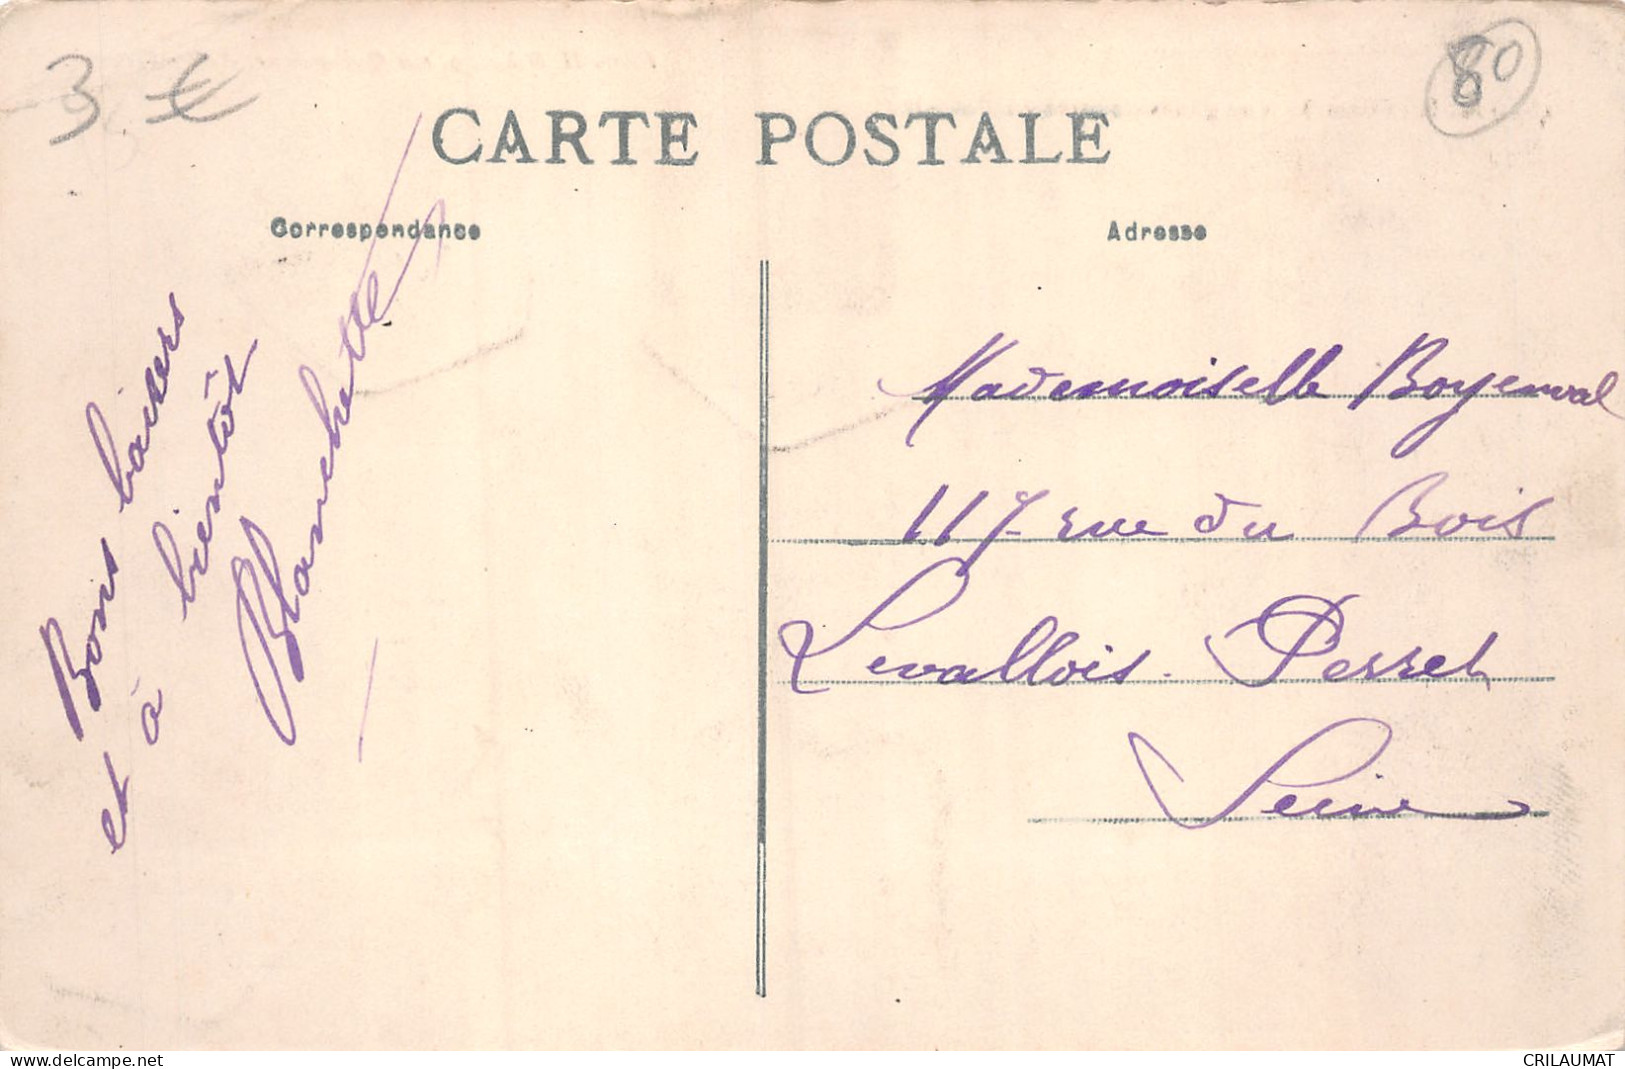 3 €
80
CARTE POSTALE
Correspondance
Adresse
Bons baisers
et à bientôt
Blanchette
Mademoiselle Boyenval
117 rue du Bois
Levallois-Perret
Seine
www.delcampe.net
CRILAUMAT